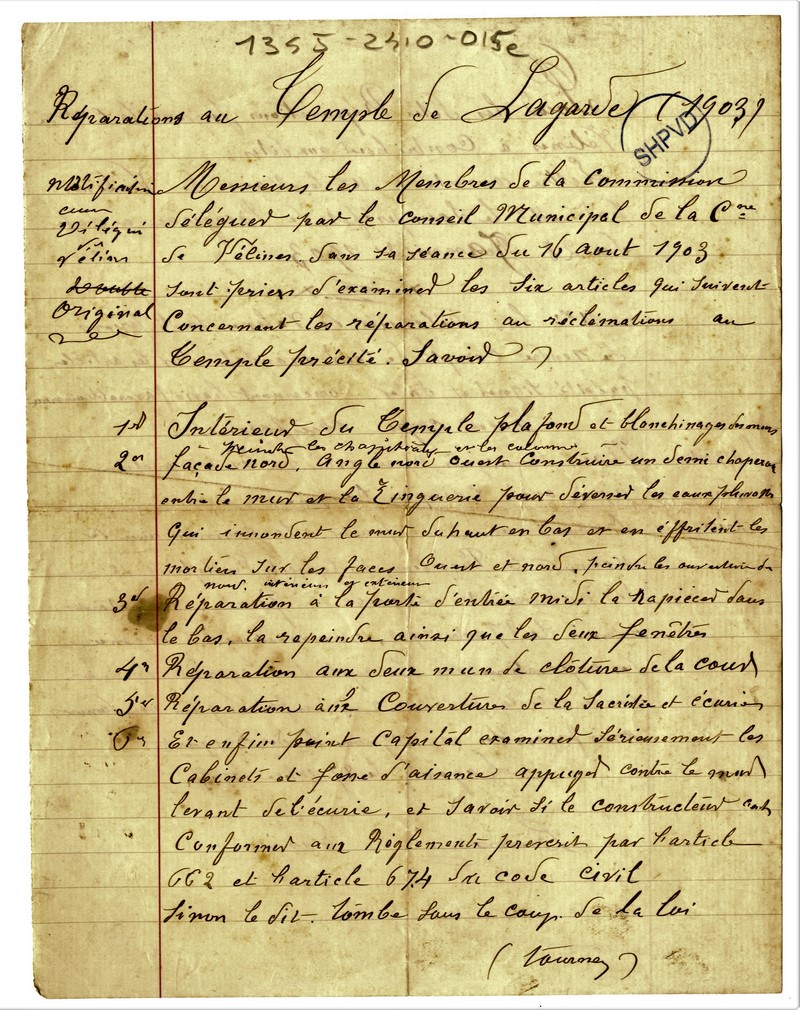 1355-2410-015e
Réparations au Temple de Lagarde (1903)
SHPVD
Messieurs les Membres de la Commission
déléguer par le conseil Municipal de la Cne
de Vélines dans sa séance du 16 aout 1903
double
sont priers d'examiner les six articles qui suivent
Original
Concernant les réparations au réclémations au
Temple précité. Savoir
1er Intérieur du Temple plafond et blanchinages des murs
peindre les chapiteaux et les colonnes
2em façade nord, Angle nord Ouest Construire un demi chaperon
entre le mur et la Zinguerie pour déverser les eaux pluvialles
Qui innondent le mur du haut en bas et en éffritent les
mortiers sur les faces Ouest et nord, peindre les ouvertures du
nord. intérieur et extérieur
3e Réparation à la porte d'entrée midi la rapiécer dans
le bas, la repeindre ainsi que les deux fenêtres
4e Réparation aux deux murs de clôture de la cour
5e Réparation aux 2 Couvertures de la Sacristie et écuries
6e Et enfin point Capital examiner sérieusement les
Cabinets et fosse d'aisance appuyer contre le mur
levant de l'écurie, et savoir si le constructeur c'est
Conformer aux Règlements prescrit par l'article
662 et l'article 674 du code civil
Sinon le dit. tombe sous le coup de la loi
(tournez)